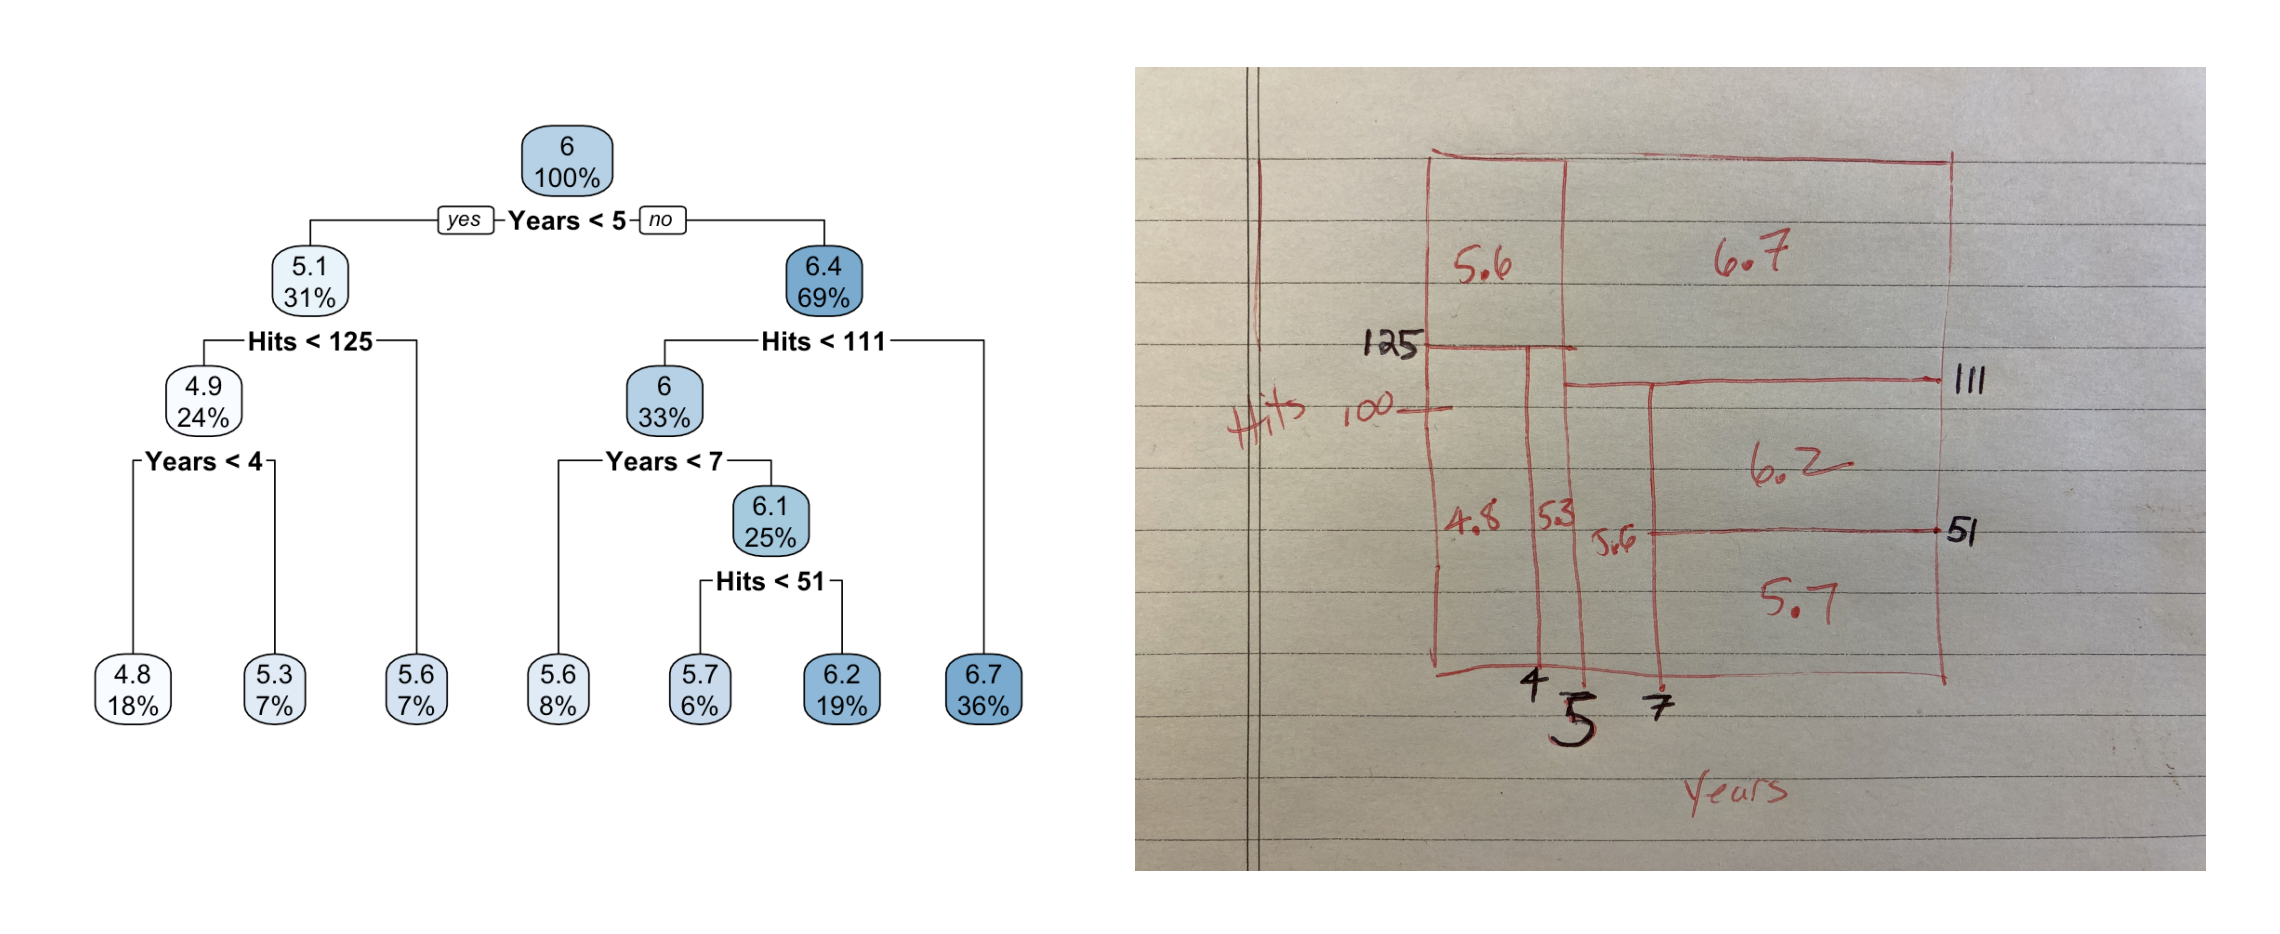 6
100%
yes Years < 5 no
5.1
31%
6.4
69%
Hits < 125
Hits < 111
4.9
24%
6
33%
Years < 4
Years < 7
6.1
25%
Hits < 51
4.8
18%
5.3
7%
5.6
7%
5.6
8%
5.7
6%
6.2
19%
6.7
36%
5.6
6.7
125
111
Hits 100
6.2
4.8
5.3
5.6
51
5.7
4
5
7
Years